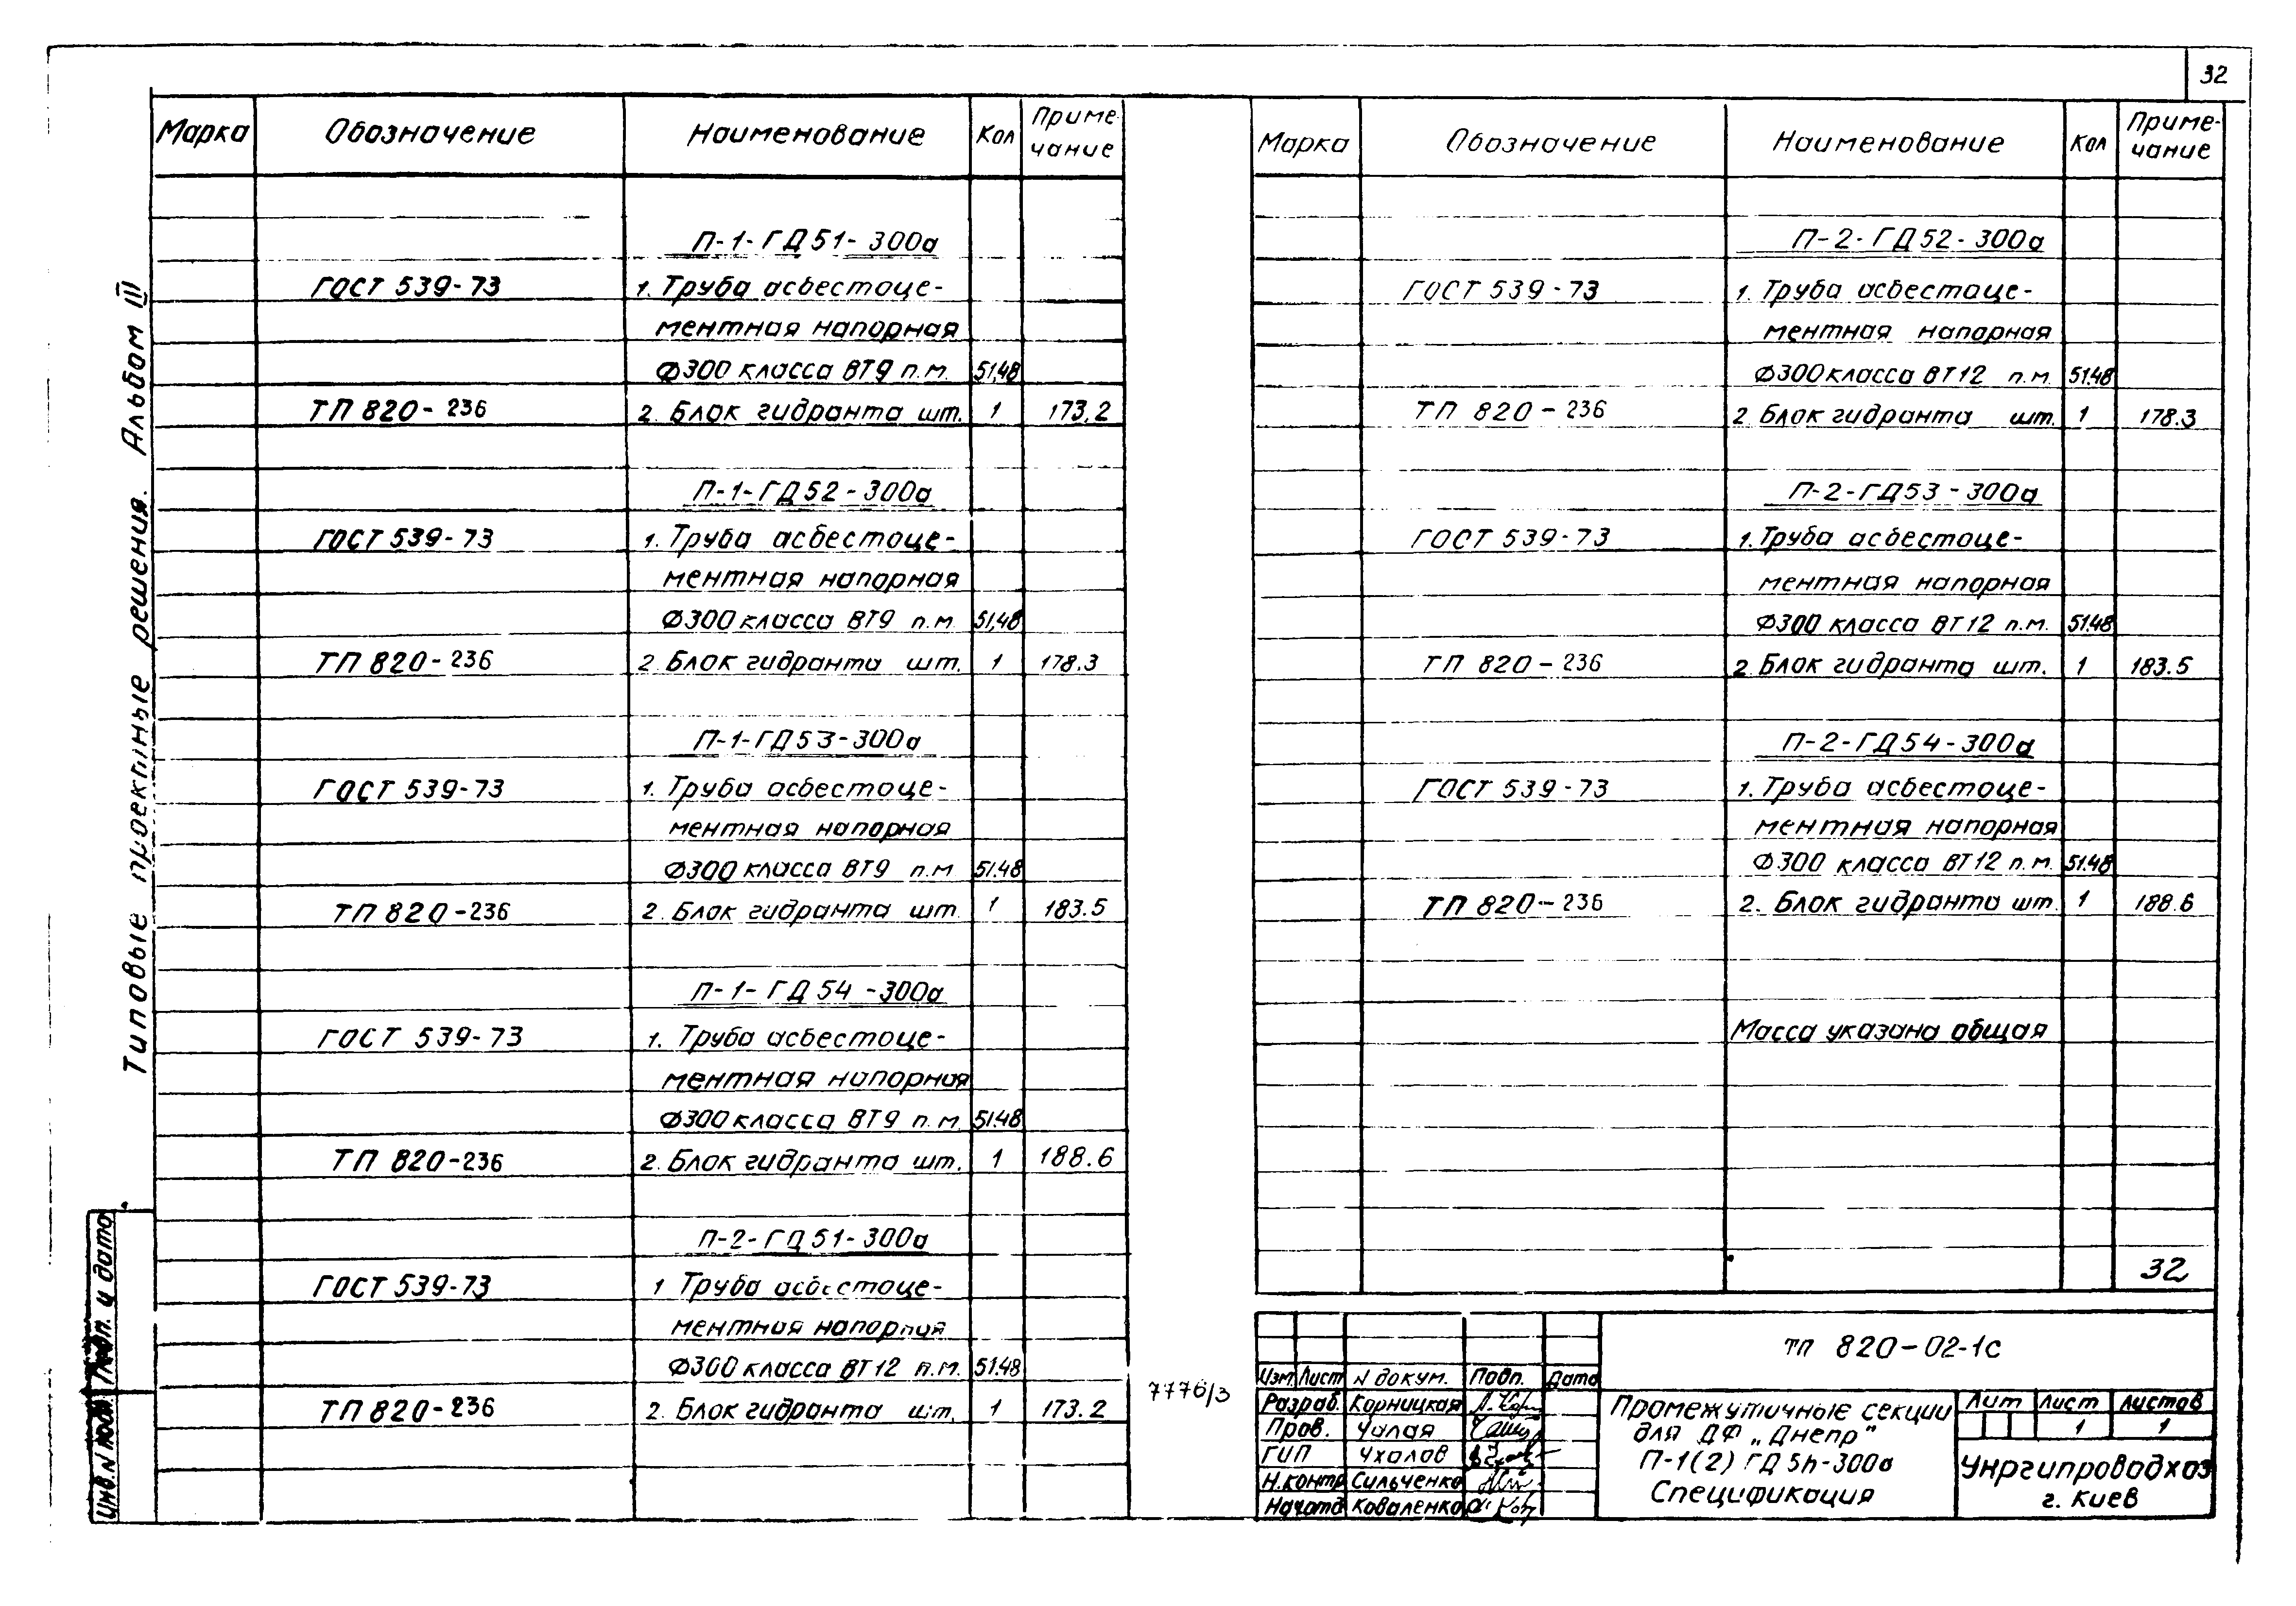 32
Типовые проектные решения. Альбом III
Марка Обозначение Наименование Кол Приме-
чание
П-1-ГД51-300а
ГОСТ 539-73 1. Труба асбестоце-
ментная напорная
Ф300 класса ВТ9 п.м. 51,48
ТП 820-236 2. Блок гидранта шт. 1 173,2
П-1-ГД52-300а
ГОСТ 539-73 1. Труба асбестоце-
ментная напорная
Ф300 класса ВТ9 п.м. 51,48
ТП 820-236 2. Блок гидранта шт. 1 178.3
П-1-ГД53-300а
ГОСТ 539-73 1. Труба асбестоце-
ментная напорная
Ф300 класса ВТ9 п.м 51.48
ТП 820-236 2. Блок гидранта шт 1 183.5
П-1-ГД54-300а
ГОСТ 539-73 1. Труба асбестоце-
ментная напорная
Ф300 класса ВТ9 п.м 51.48
ТП 820-236 2. Блок гидранта шт. 1 188.6
П-2-ГД51-300а
ГОСТ 539-73 1 Труба асбестоце-
ментная напорная
Ф300 класса ВТ12 п.м. 51.48
ТП 820-236 2. Блок гидранта шт. 1 173.2
Инв.N подл. Подп. и дата
7776/3
Марка Обозначение Наименование Кол Приме-
чание
П-2-ГД52-300а
ГОСТ 539-73 1. Труба асбестоце-
ментная напорная
Ф300 класса ВТ12 п.м. 51.48
ТП 820-236 2. Блок гидранта шт. 1 178.3
П-2-ГД53-300а
ГОСТ 539-73 1. Труба асбестоце-
ментная напорная
Ф300 класса ВТ12 п.м. 51.48
ТП 820-236 2. Блок гидранта шт. 1 183.5
П-2-ГД54-300а
ГОСТ 539-73 1. Труба асбестоце-
ментная напорная
Ф300 класса ВТ12 п.м. 51.48
ТП 820-236 2. Блок гидранта шт. 1 188.6
Масса указана общая
32
ТП 820-02-1с
Изм Лист N докум. Подп. Дата
Разраб. Корницкая
Пров. Чалая
ГИП Ухалов
Н.контр Сильченко
Нач.отд Коваленко
Промежуточные секции
для ДФ „Днепр"
П-1(2) ГД5h-300а
Спецификация
Лит Лист Листов
1 1
Укргипроводхоз
г. Киев